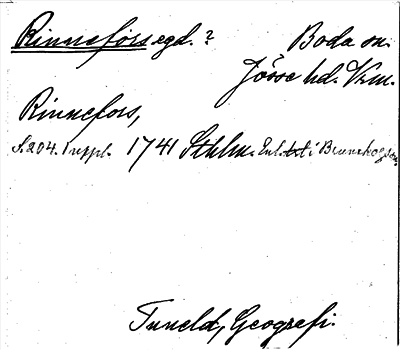 Rinnefors egd. ? Boda sn.
Jösse hd. Vrm.
Rinnefors,
S. 204. 1 uppl. 1741 Sthlm. Enl. txt i Brunskogs sn.
Tuneld, Geografi.